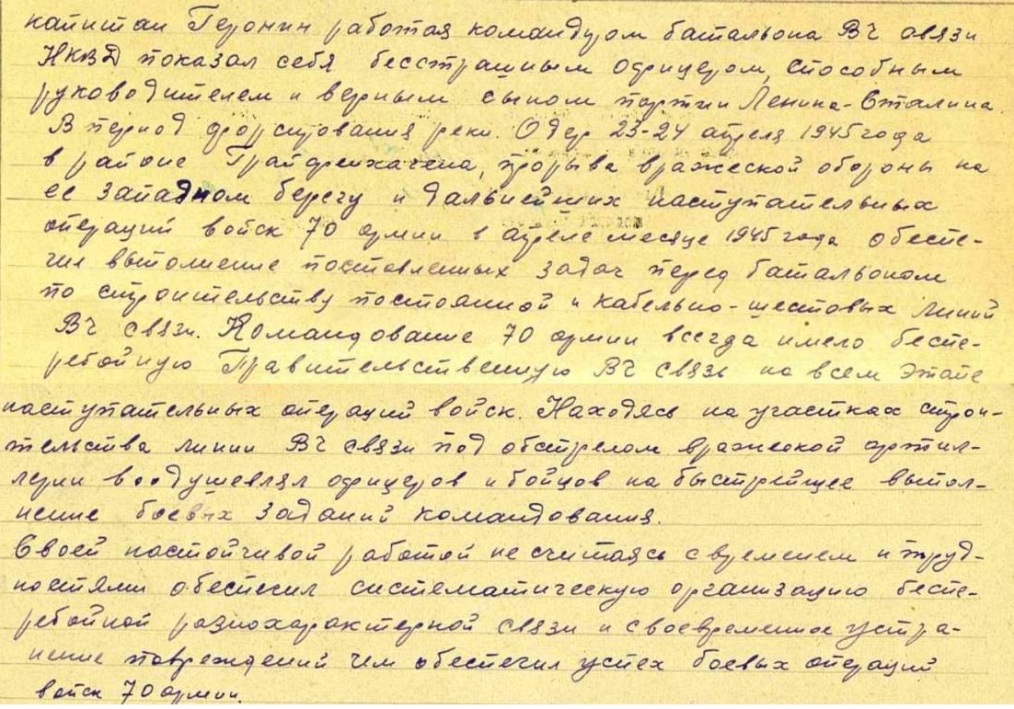 капитан Геронин работая командуом батальона ВЧ связи
НКВД показал себя бесстрашным офицером, способным
руководителем и верным сыном партии Ленина-Сталина.
В период форсирования реки Одер 23-24 апреля 1945 года
в районе прорыва вражеской обороны на
ее западном берегу и дальнейших наступательных
операций войск 70 армии в апреле месяце 1945 года обеспе-
чил выполнение поставленных задач перед батальоном
по строительству постоянной и кабельно-шестовых линий
ВЧ связи. Командование 70 армии всегда имело беспе-
ребойную Правительственную ВЧ связь на всем этапе
наступательных операций войск. Находясь на участках строи-
тельства линии ВЧ связи под обстрелом вражеской артил-
лерии воодушевлял офицеров и бойцов на быстрейшее выпол-
нение боевых заданий командования.
Своей настойчивой работой не считаясь с временем и труд-
ностями обеспечил систематическую организацию беспе-
ребойной разнохарактерной связи и своевременное устра-
нение повреждений чем обеспечил успех боевых операций
войск 70 армии.